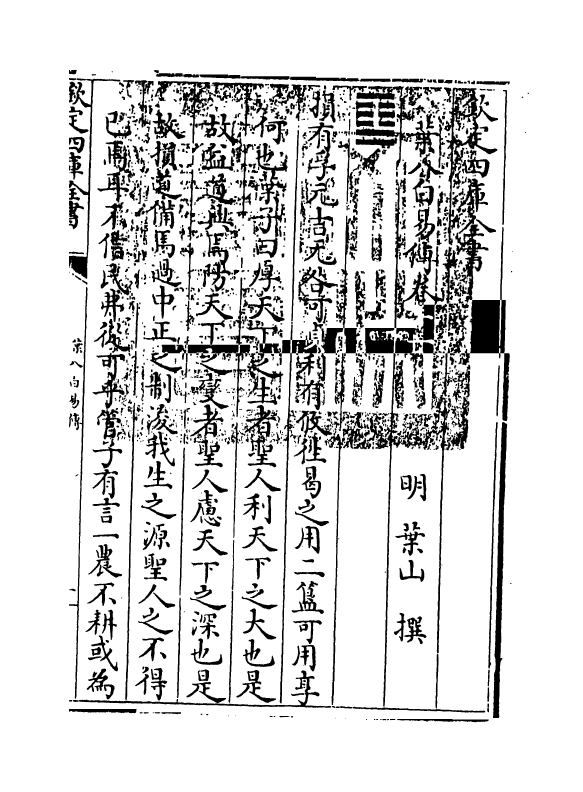 欽定四庫全書
葉八白易傳卷
明 葉山 撰
損有孚元吉无咎可貞利有攸往曷之用二簋可用享
何也葉子曰厚天下之生者聖人利天下之大也是
故益道興焉防天下之變者聖人慮天下之深也是
故損道備焉過中正之制浚我生之源聖人之不得
已焉耳不借民弗後可乎管子有言一農不耕或為
欽定四庫全書
葉八白易傳